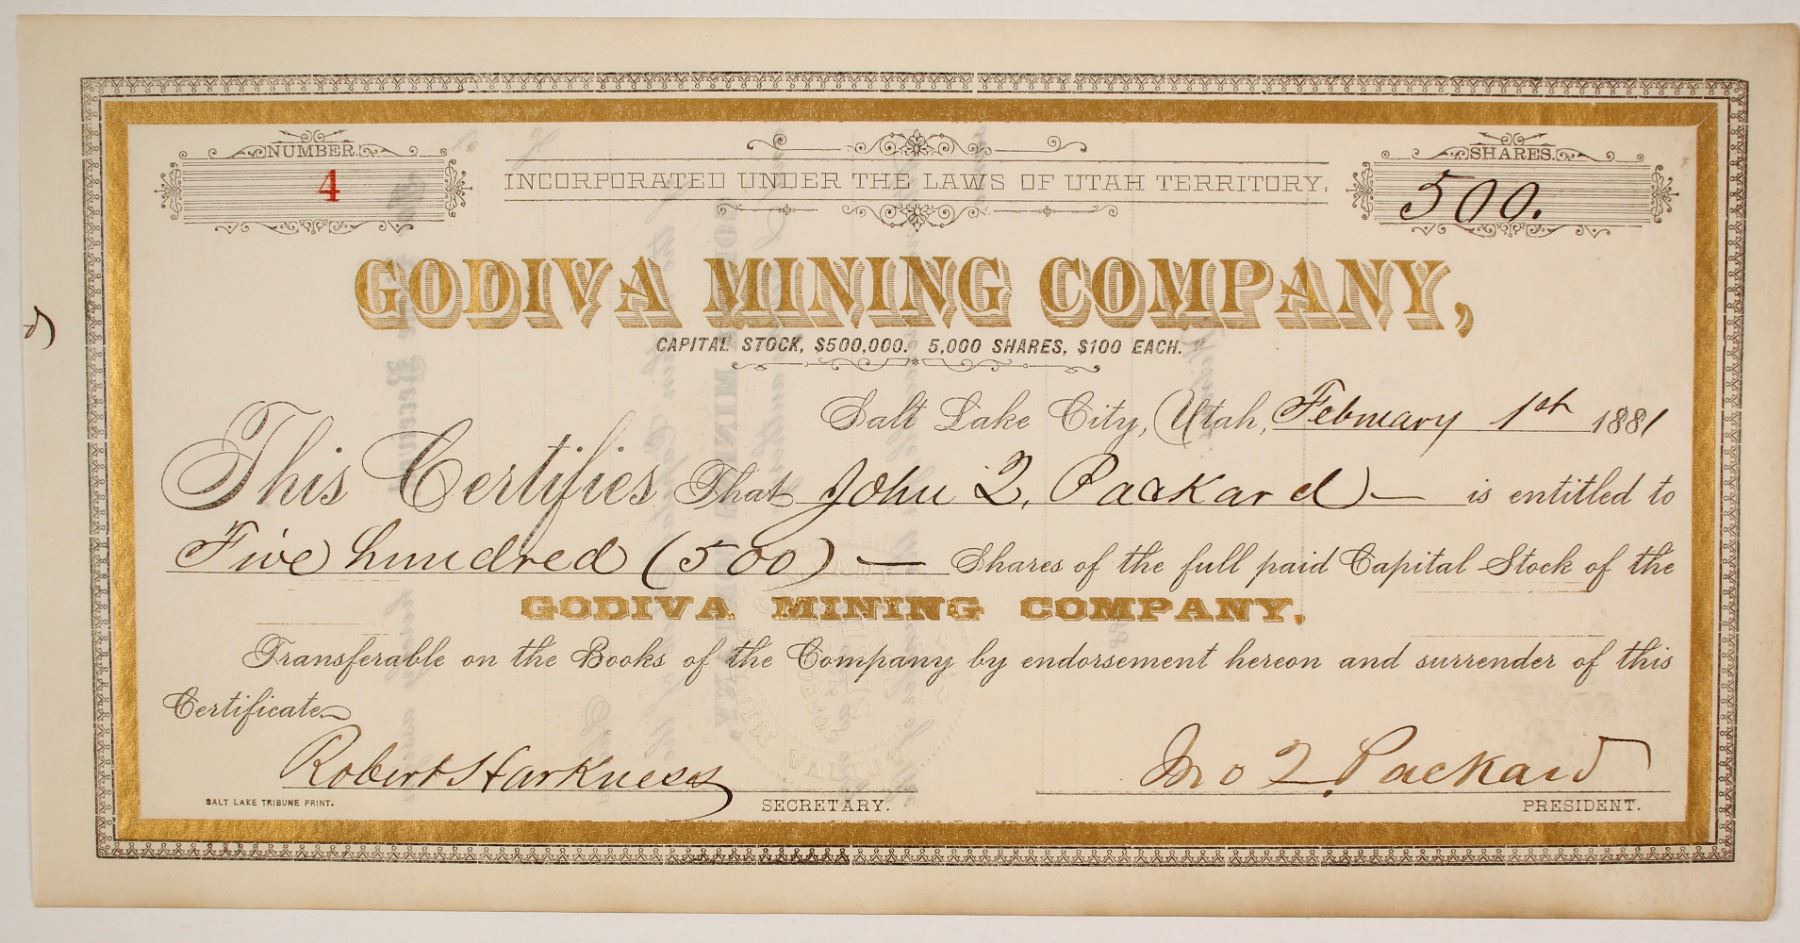 NUMBER
4
INCORPORATED UNDER THE LAWS OF UTAH TERRITORY.
SHARES.
500.
GODIVA MINING COMPANY,
CAPITAL STOCK, $500,000. 5,000 SHARES, $100 EACH.
Salt Lake City, Utah, February 1st 1881
This Certifies That John Q. Packard — is entitled to
Five hundred (500) — Shares of the full paid Capital Stock of the
GODIVA MINING COMPANY,
Transferable on the Books of the Company by endorsement hereon and surrender of this
Certificate
Robert Harkness
SECRETARY.
Jno Q. Packard
PRESIDENT.
SALT LAKE TRIBUNE PRINT.